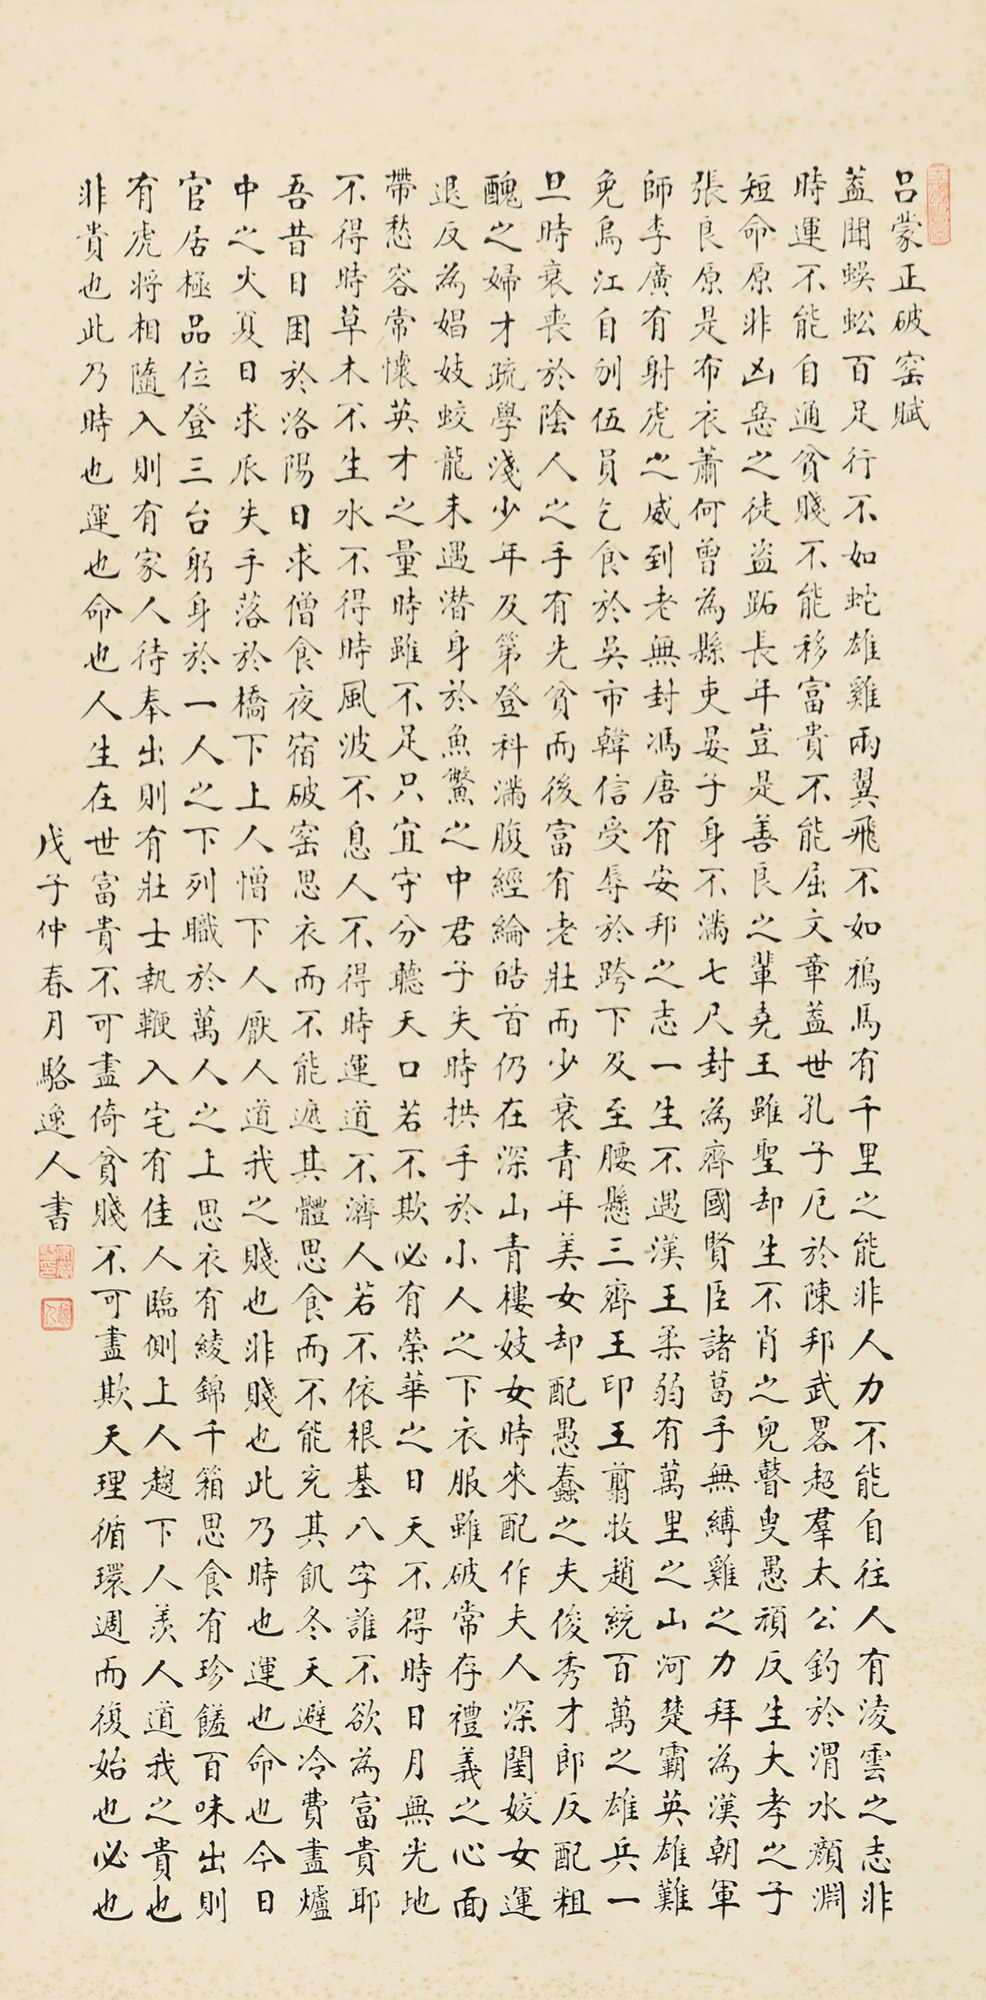 呂蒙正破窑賦
蓋聞蜈蚣百足行不如蛇雄雞兩翼飛不如鴉馬有千里之能非人力不能自往人有淩雲之志非
時運不能自通貧賤不能移富貴不能屈文章蓋世孔子厄於陳邦武畧超羣太公釣於渭水顏淵
短命原非凶惡之徒盜跖長年豈是善良之輩堯王雖聖却生不肖之兒瞽叟愚頑反生大孝之子
張良原是布衣蕭何曾為縣吏晏子身不滿七尺封為齊國賢臣諸葛手無縛雞之力拜為漢朝軍
師李廣有射虎之威到老無封馮唐有安邦之志一生不遇漢王柔弱有萬里之山河楚霸英雄難
免烏江自刎伍員乞食於吳市韓信受辱於跨下及至腰懸三齊王印王翦牧趙統百萬之雄兵一
旦時衰喪於陰人之手有先貧而後富有老壯而少衰青年美女却配愚蠢之夫俊秀才郎反配粗
醜之婦才疏學淺少年及第登科滿腹經綸皓首仍在深山青樓妓女時來配作夫人深閨姣女運
退反為娼妓蛟龍未遇潜身於魚鱉之中君子失時拱手於小人之下衣服雖破常存禮義之心面
帶愁容常懷英才之量時雖不足只宜守分聽天口若不欺必有榮華之日天不得時日月無光地
不得時草木不生水不得時風波不息人不得時運道不濟人若不依根基八字誰不欲為富貴耶
吾昔日困於洛陽日求僧食夜宿破窑思衣而不能遮其體思食而不能充其飢冬天避冷費盡爐
中之火夏日求瓜失手落於橋下上人憎下人厭人道我之賤也非賤也此乃時也運也命也今日
官居極品位登三台躬身於一人之下列職於萬人之上思衣有綾錦千箱思食有珍饈百味出則
有虎將相隨入則有家人待奉出則有壯士執鞭入宅有佳人臨側上人趨下人羨人道我之貴也
非貴也此乃時也運也命也人生在世富貴不可盡倚貧賤不可盡欺天理循環週而復始也必也
戊子仲春月駱逸人書